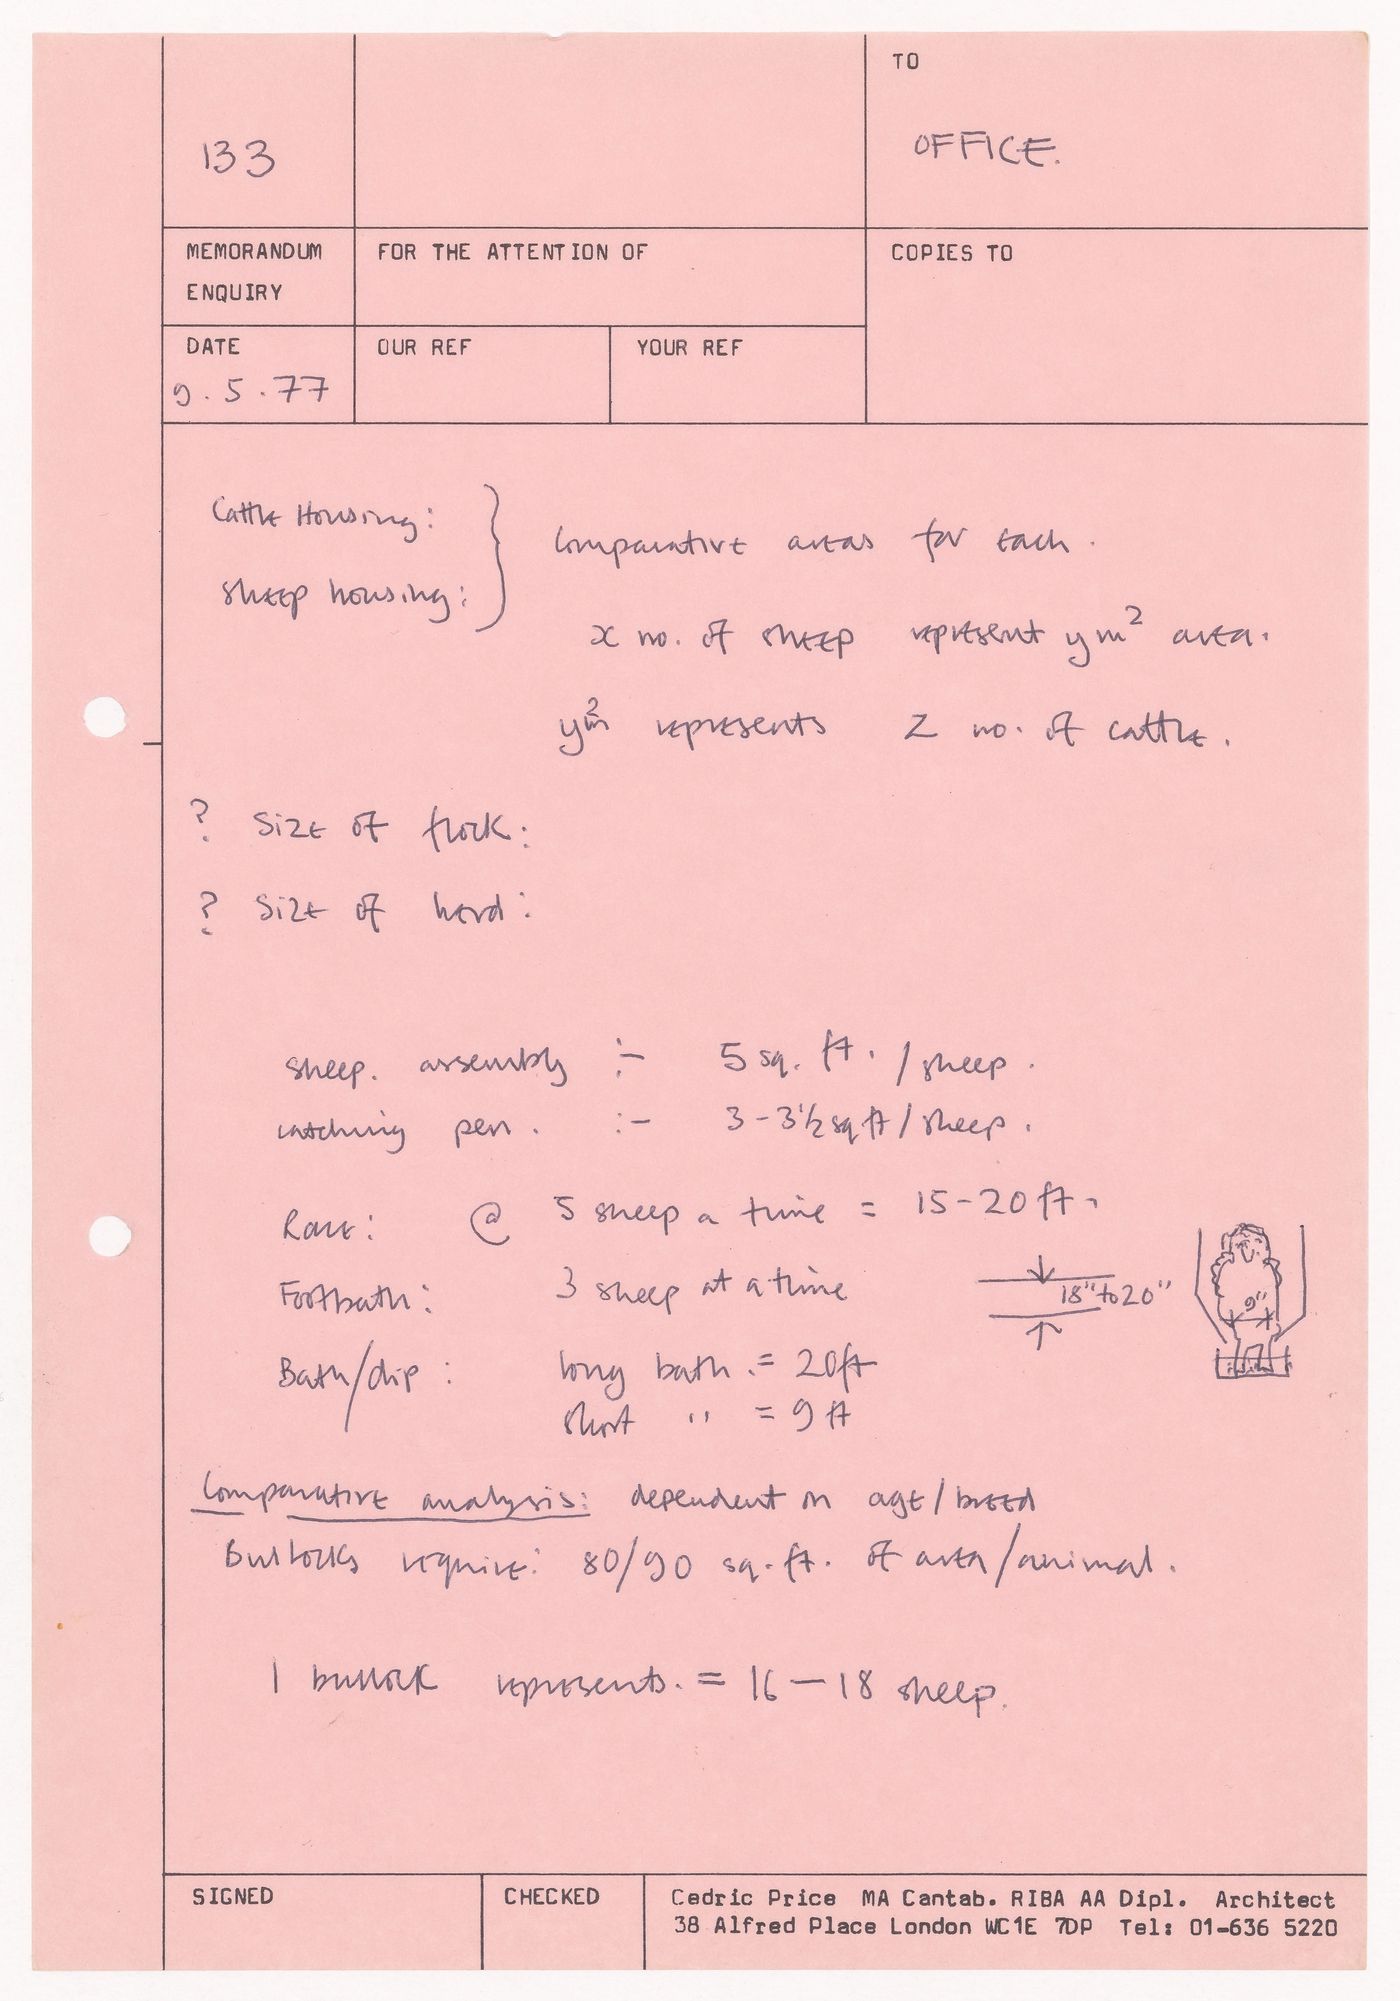 TO
133
OFFICE.
MEMORANDUM
ENQUIRY
FOR THE ATTENTION OF
COPIES TO
DATE
9.5.77
OUR REF
YOUR REF
Cattle Housing:
Sheep housing:
Comparative areas for each.
x no. of sheep represent y m² area.
y m² represents z no. of cattle.
? Size of flock:
? Size of herd:
sheep. assembly :- 5 sq. ft. / sheep.
catching pen. :- 3-3½ sq ft / sheep.
Race: @ 5 sheep a time = 15-20 ft.
Footbath: 3 sheep at a time
18" to 20"
9"
Bath/dip: long bath. = 20ft
short " = 9 ft
Comparative analysis: dependent on age/breed
Bullocks require: 80/90 sq. ft. of area/animal.
1 bullock represents. = 16-18 sheep.
SIGNED
CHECKED
Cedric Price MA Cantab. RIBA AA Dipl. Architect
38 Alfred Place London WC1E 7DP Tel: 01-636 5220